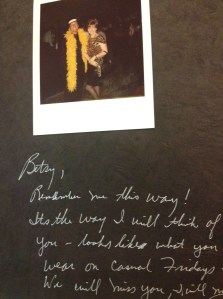 Betsy,
Remember me this way!
Its the way I will think of
you - looks like what you
wear on Casual Fridays
We will miss you I will m